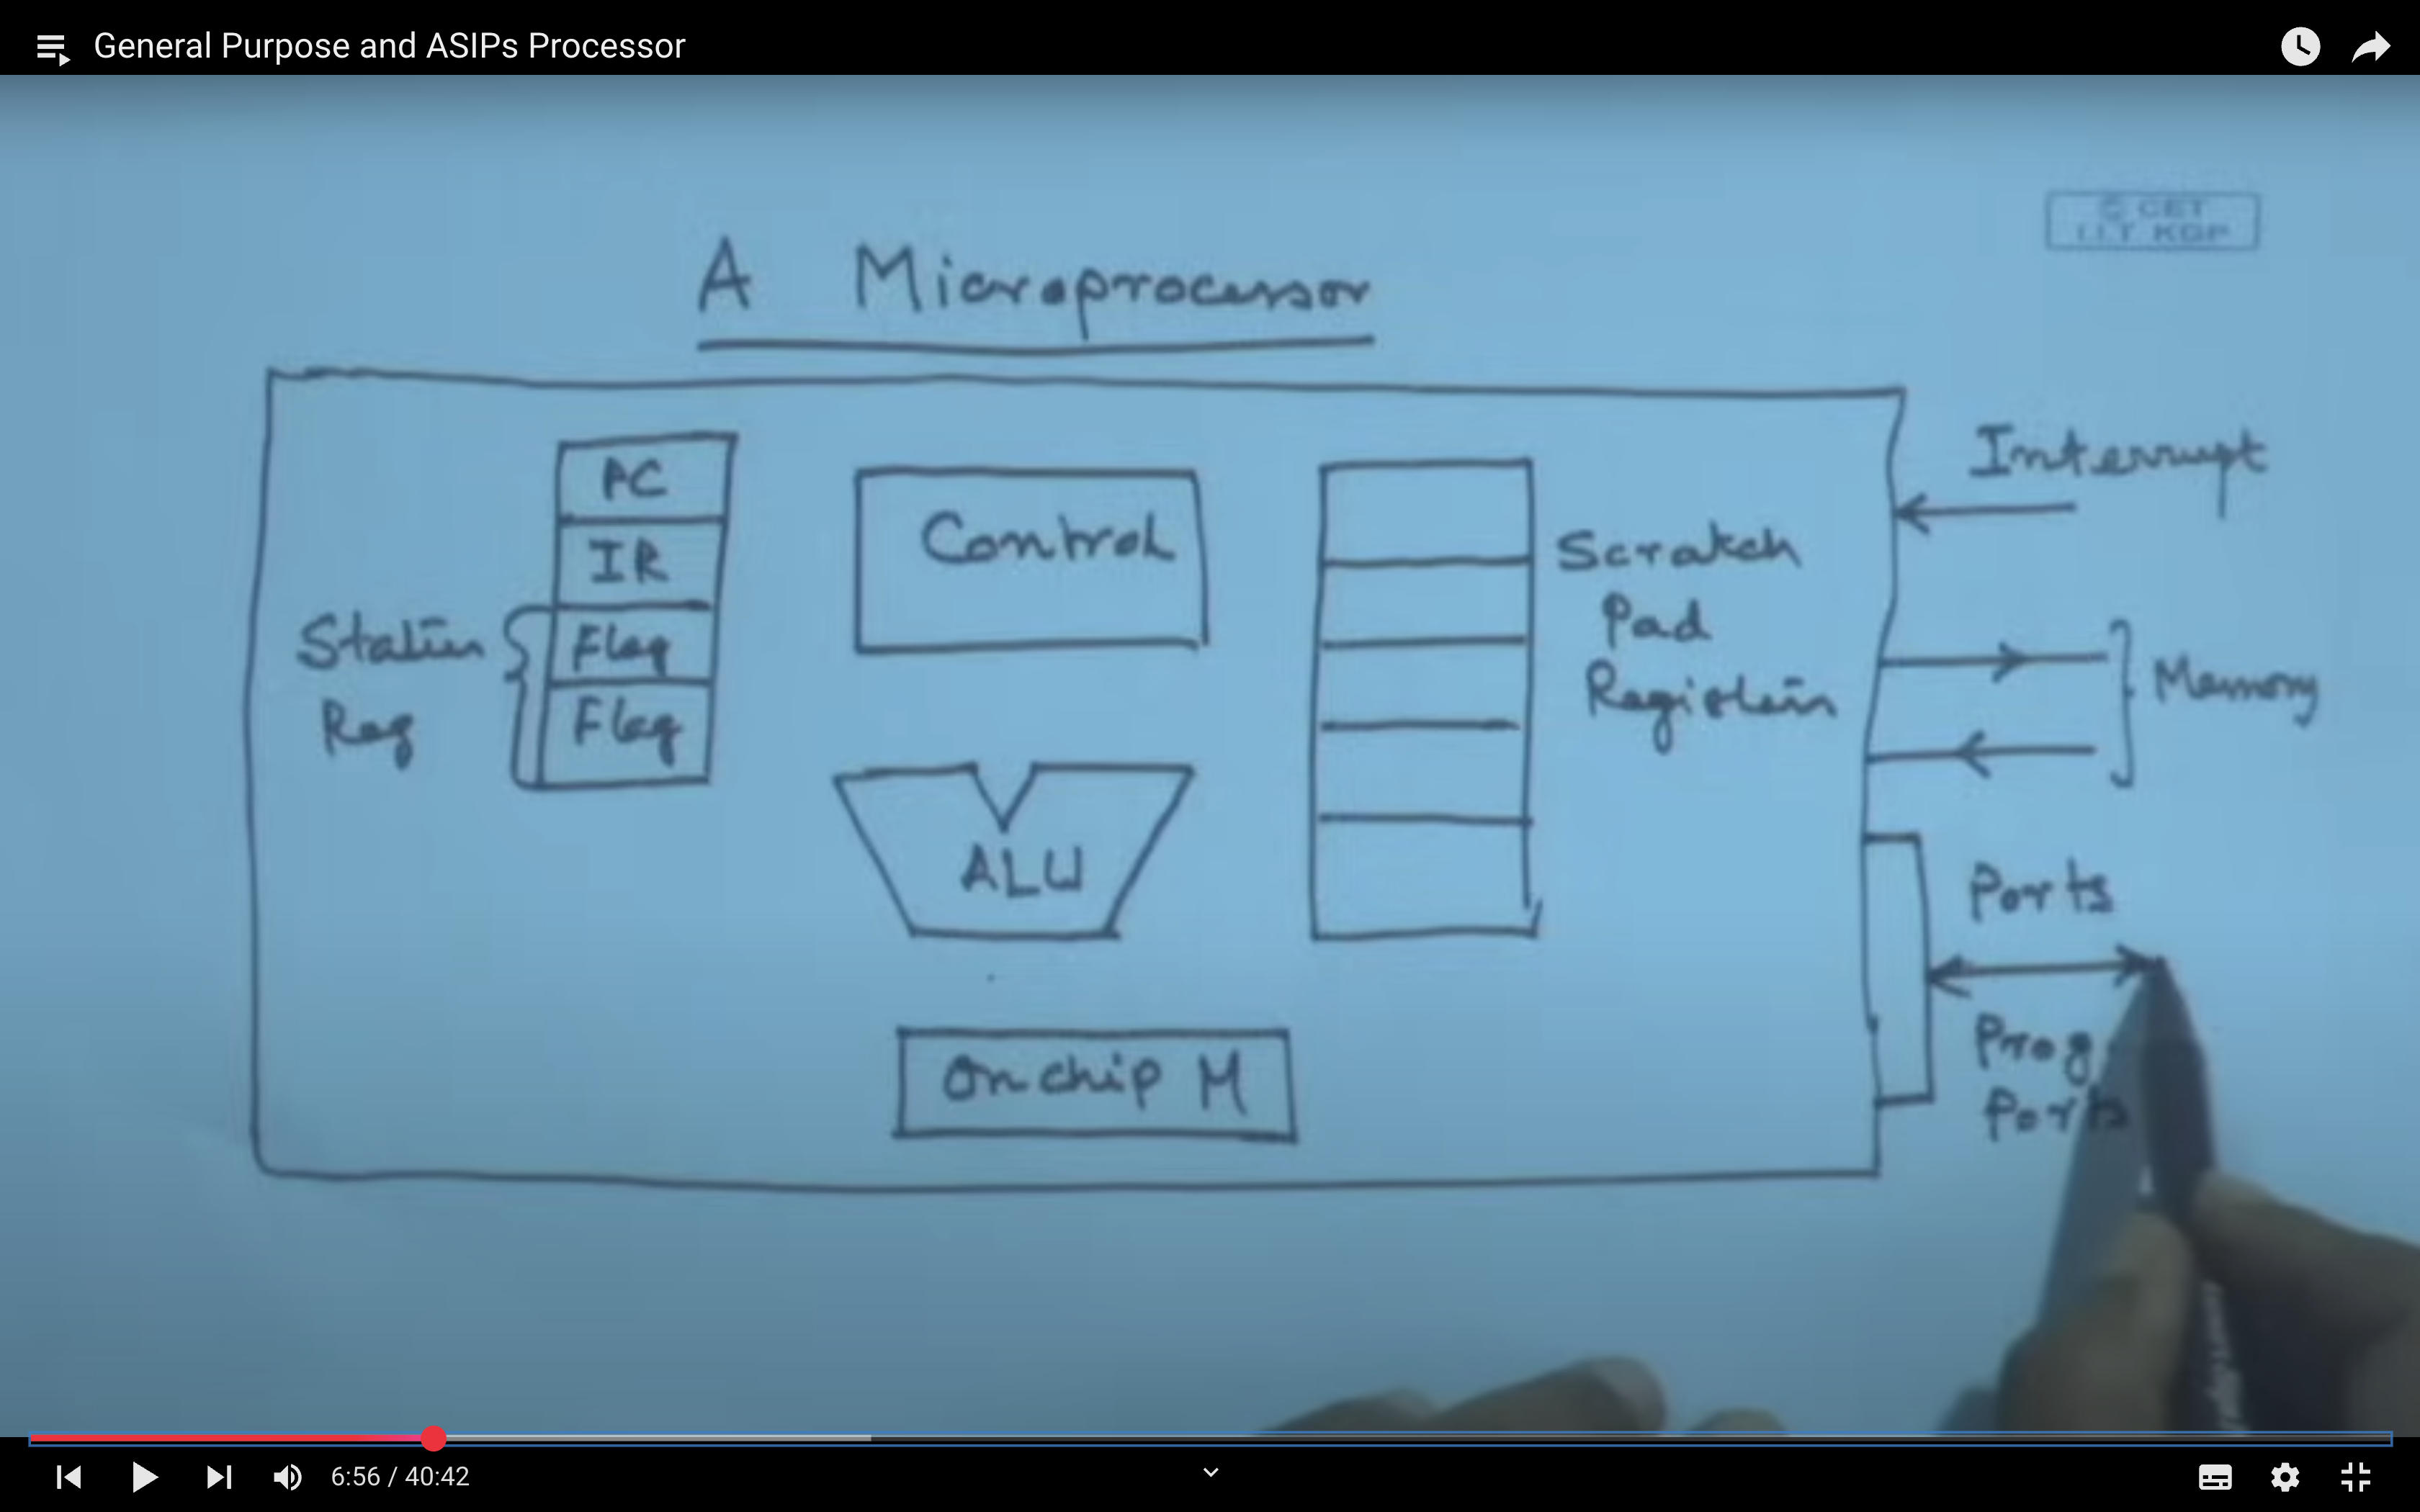 General Purpose and ASIPs Processor
© CET
I.I.T KGP
A Microprocessor
PC
IR
Flag
Flag
Status
Reg
Control
ALU
On chip M
Scratch
Pad
Registers
Interrupt
Memory
Ports
Prog
Ports
6:56 / 40:42